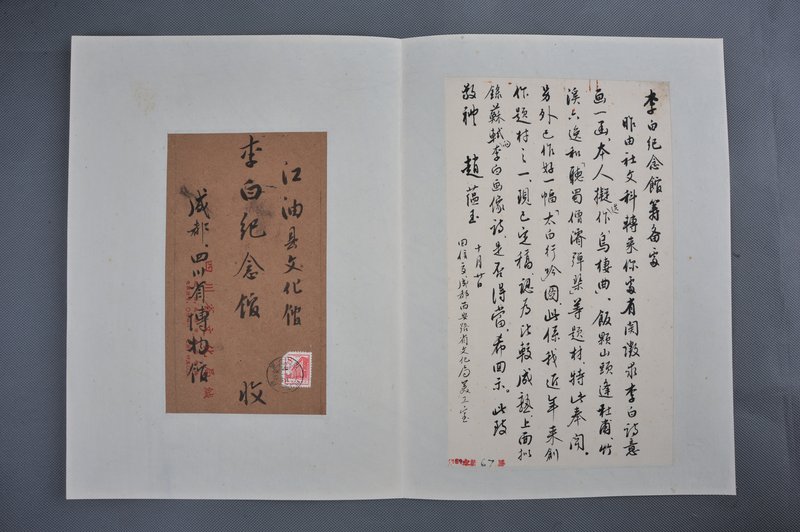 江油县文化馆
李白纪念馆 收
成都、四川省博物館
李白纪念館筹备处
昨由社文科轉来你處有关徵求李白詩意
画一函、本人擬选作「烏棲曲」、飯顆山頭逢杜甫、竹
溪六逸和「聽蜀僧濬弹琴」等題材、特此奉闻。
另外已作好一幅「太白行吟」圖、此係我近年来創
作題材之一、現已定稿、認為比較成熟、上面拟
錄蘇軾的李白画像詩、是否得當、希回示。此致
敬礼 趙蕴玉
十月廿日
回信交成都西安路省文化局美工室
67